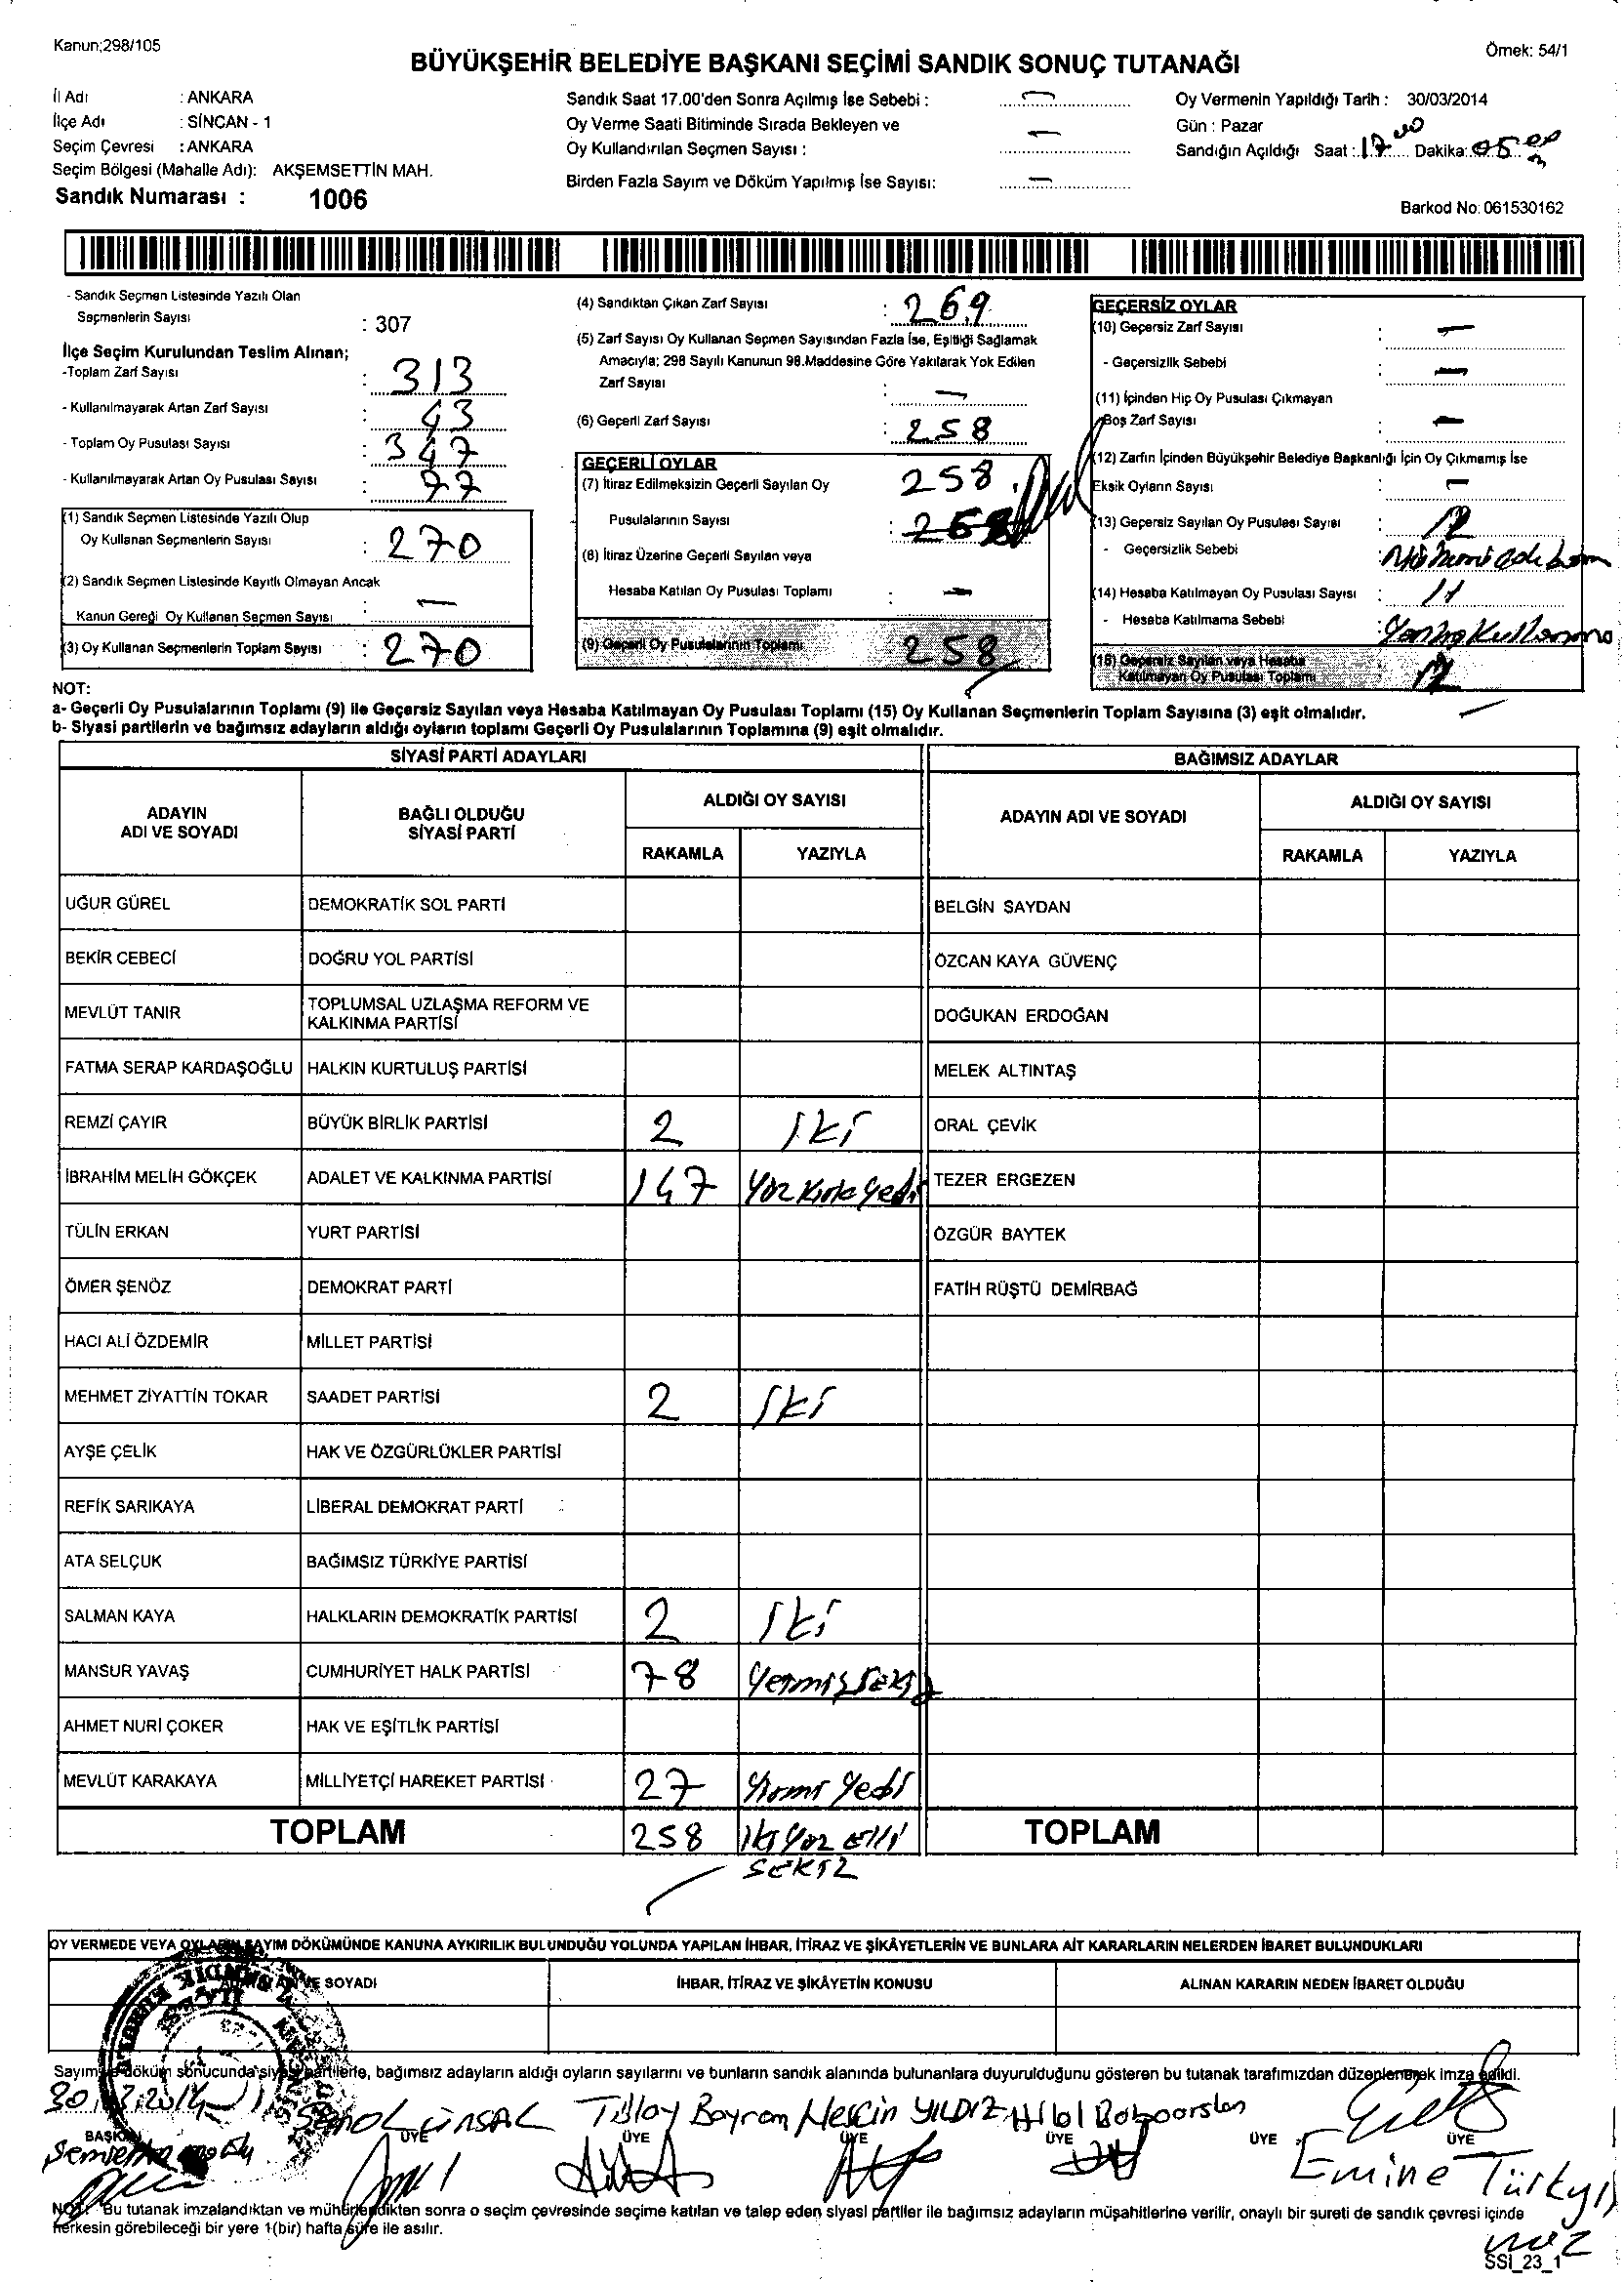 Kanun;298/105
Örnek: 54/1
BÜYÜKŞEHİR BELEDİYE BAŞKANI SEÇİMİ SANDIK SONUÇ TUTANAĞI
İl Adı : ANKARA
İlçe Adı : SİNCAN - 1
Seçim Çevresi : ANKARA
Seçim Bölgesi (Mahalle Adı): AKŞEMSETTİN MAH.
Sandık Numarası : 1006
Sandık Saat 17.00'den Sonra Açılmış İse Sebebi : —
Oy Verme Saati Bitiminde Sırada Bekleyen ve
Oy Kullandırılan Seçmen Sayısı : —
Birden Fazla Sayım ve Döküm Yapılmış İse Sayısı: —
Oy Vermenin Yapıldığı Tarih : 30/03/2014
Gün : Pazar
Sandığın Açıldığı Saat : 17 Dakika: 05
Barkod No: 061530162
- Sandık Seçmen Listesinde Yazılı Olan
Seçmenlerin Sayısı : 307
İlçe Seçim Kurulundan Teslim Alınan;
-Toplam Zarf Sayısı : 313
- Kullanılmayarak Artan Zarf Sayısı : 43
- Toplam Oy Pusulası Sayısı : 347
- Kullanılmayarak Artan Oy Pusulası Sayısı : 77
(1) Sandık Seçmen Listesinde Yazılı Olup
Oy Kullanan Seçmenlerin Sayısı : 270
(2) Sandık Seçmen Listesinde Kayıtlı Olmayan Ancak
Kanun Gereği Oy Kullanan Seçmen Sayısı : —
(3) Oy Kullanan Seçmenlerin Toplam Sayısı : 270
(4) Sandıktan Çıkan Zarf Sayısı : 269
(5) Zarf Sayısı Oy Kullanan Seçmen Sayısından Fazla İse, Eşitliği Sağlamak
Amacıyla; 298 Sayılı Kanunun 98.Maddesine Göre Yakılarak Yok Edilen
Zarf Sayısı : —
(6) Geçerli Zarf Sayısı : 258
GEÇERLİ OYLAR
(7) İtiraz Edilmeksizin Geçerli Sayılan Oy 258
Pusulalarının Sayısı :
(8) İtiraz Üzerine Geçerli Sayılan veya
Hesaba Katılan Oy Pusulası Toplamı : —
(9) Geçerli Oy Pusulalarının Toplamı 258
GEÇERSİZ OYLAR
(10) Geçersiz Zarf Sayısı : —
- Geçersizlik Sebebi : —
(11) İçinden Hiç Oy Pusulası Çıkmayan
Boş Zarf Sayısı : —
(12) Zarfın İçinden Büyükşehir Belediye Başkanlığı İçin Oy Çıkmamış İse
Eksik Oyların Sayısı : —
(13) Geçersiz Sayılan Oy Pusulası Sayısı : 12
- Geçersizlik Sebebi :
(14) Hesaba Katılmayan Oy Pusulası Sayısı : 11
- Hesaba Katılmama Sebebi :
(15) Geçersiz Sayılan veya Hesaba
Katılmayan Oy Pusulası Toplamı : 12
NOT:
a- Geçerli Oy Pusulalarının Toplamı (9) ile Geçersiz Sayılan veya Hesaba Katılmayan Oy Pusulası Toplamı (15) Oy Kullanan Seçmenlerin Toplam Sayısına (3) eşit olmalıdır.
b- Siyasi partilerin ve bağımsız adayların aldığı oyların toplamı Geçerli Oy Pusulalarının Toplamına (9) eşit olmalıdır.
SİYASİ PARTİ ADAYLARI
ADAYIN
ADI VE SOYADI
BAĞLI OLDUĞU
SİYASİ PARTİ
ALDIĞI OY SAYISI
RAKAMLA YAZIYLA
UĞUR GÜREL DEMOKRATİK SOL PARTİ
BEKİR CEBECİ DOĞRU YOL PARTİSİ
MEVLÜT TANIR TOPLUMSAL UZLAŞMA REFORM VE
KALKINMA PARTİSİ
FATMA SERAP KARDAŞOĞLU HALKIN KURTULUŞ PARTİSİ
REMZİ ÇAYIR BÜYÜK BİRLİK PARTİSİ 2 İki
İBRAHİM MELİH GÖKÇEK ADALET VE KALKINMA PARTİSİ 147 yüz Kırk yedi
TÜLİN ERKAN YURT PARTİSİ
ÖMER ŞENÖZ DEMOKRAT PARTİ
HACI ALİ ÖZDEMİR MİLLET PARTİSİ
MEHMET ZİYATTİN TOKAR SAADET PARTİSİ 2 İki
AYŞE ÇELİK HAK VE ÖZGÜRLÜKLER PARTİSİ
REFİK SARIKAYA LİBERAL DEMOKRAT PARTİ
ATA SELÇUK BAĞIMSIZ TÜRKİYE PARTİSİ
SALMAN KAYA HALKLARIN DEMOKRATİK PARTİSİ 2 İki
MANSUR YAVAŞ CUMHURİYET HALK PARTİSİ 78 Yetmiş sekiz
AHMET NURİ ÇOKER HAK VE EŞİTLİK PARTİSİ
MEVLÜT KARAKAYA MİLLİYETÇİ HAREKET PARTİSİ 27 Yirmi Yedi
TOPLAM 258 iki yüz elli
SEKİZ
BAĞIMSIZ ADAYLAR
ADAYIN ADI VE SOYADI
ALDIĞI OY SAYISI
RAKAMLA YAZIYLA
BELGİN SAYDAN
ÖZCAN KAYA GÜVENÇ
DOĞUKAN ERDOĞAN
MELEK ALTINTAŞ
ORAL ÇEVİK
TEZER ERGEZEN
ÖZGÜR BAYTEK
FATİH RÜŞTÜ DEMİRBAĞ
TOPLAM
OY VERMEDE VEYA OYLARIN SAYIM DÖKÜMÜNDE KANUNA AYKIRILIK BULUNDUĞU YOLUNDA YAPILAN İHBAR, İTİRAZ VE ŞİKÂYETLERİN VE BUNLARA AİT KARARLARIN NELERDEN İBARET BULUNDUKLARI
ADAYIN ADI VE SOYADI İHBAR, İTİRAZ VE ŞİKÂYETİN KONUSU ALINAN KARARIN NEDEN İBARET OLDUĞU
Sayım ve döküm sonucunda siyasi partilerle, bağımsız adayların aldığı oyların sayılarını ve bunların sandık alanında bulunanlara duyurulduğunu gösteren bu tutanak tarafımızdan düzenlenerek imza edildi.
30.03.2014
ŞENOL ÜNSAL Tülay Bayram Nesrin YILDIZ Hilal
BAŞKAN ÜYE ÜYE ÜYE ÜYE ÜYE ÜYE
Emine
NOT: Bu tutanak imzalandıktan ve mühürlendikten sonra o seçim çevresinde seçime katılan ve talep eden siyasi partiler ile bağımsız adayların müşahitlerine verilir, onaylı bir sureti de sandık çevresi içinde
herkesin görebileceği bir yere 1(bir) hafta süre ile asılır.
SSİ_23_1